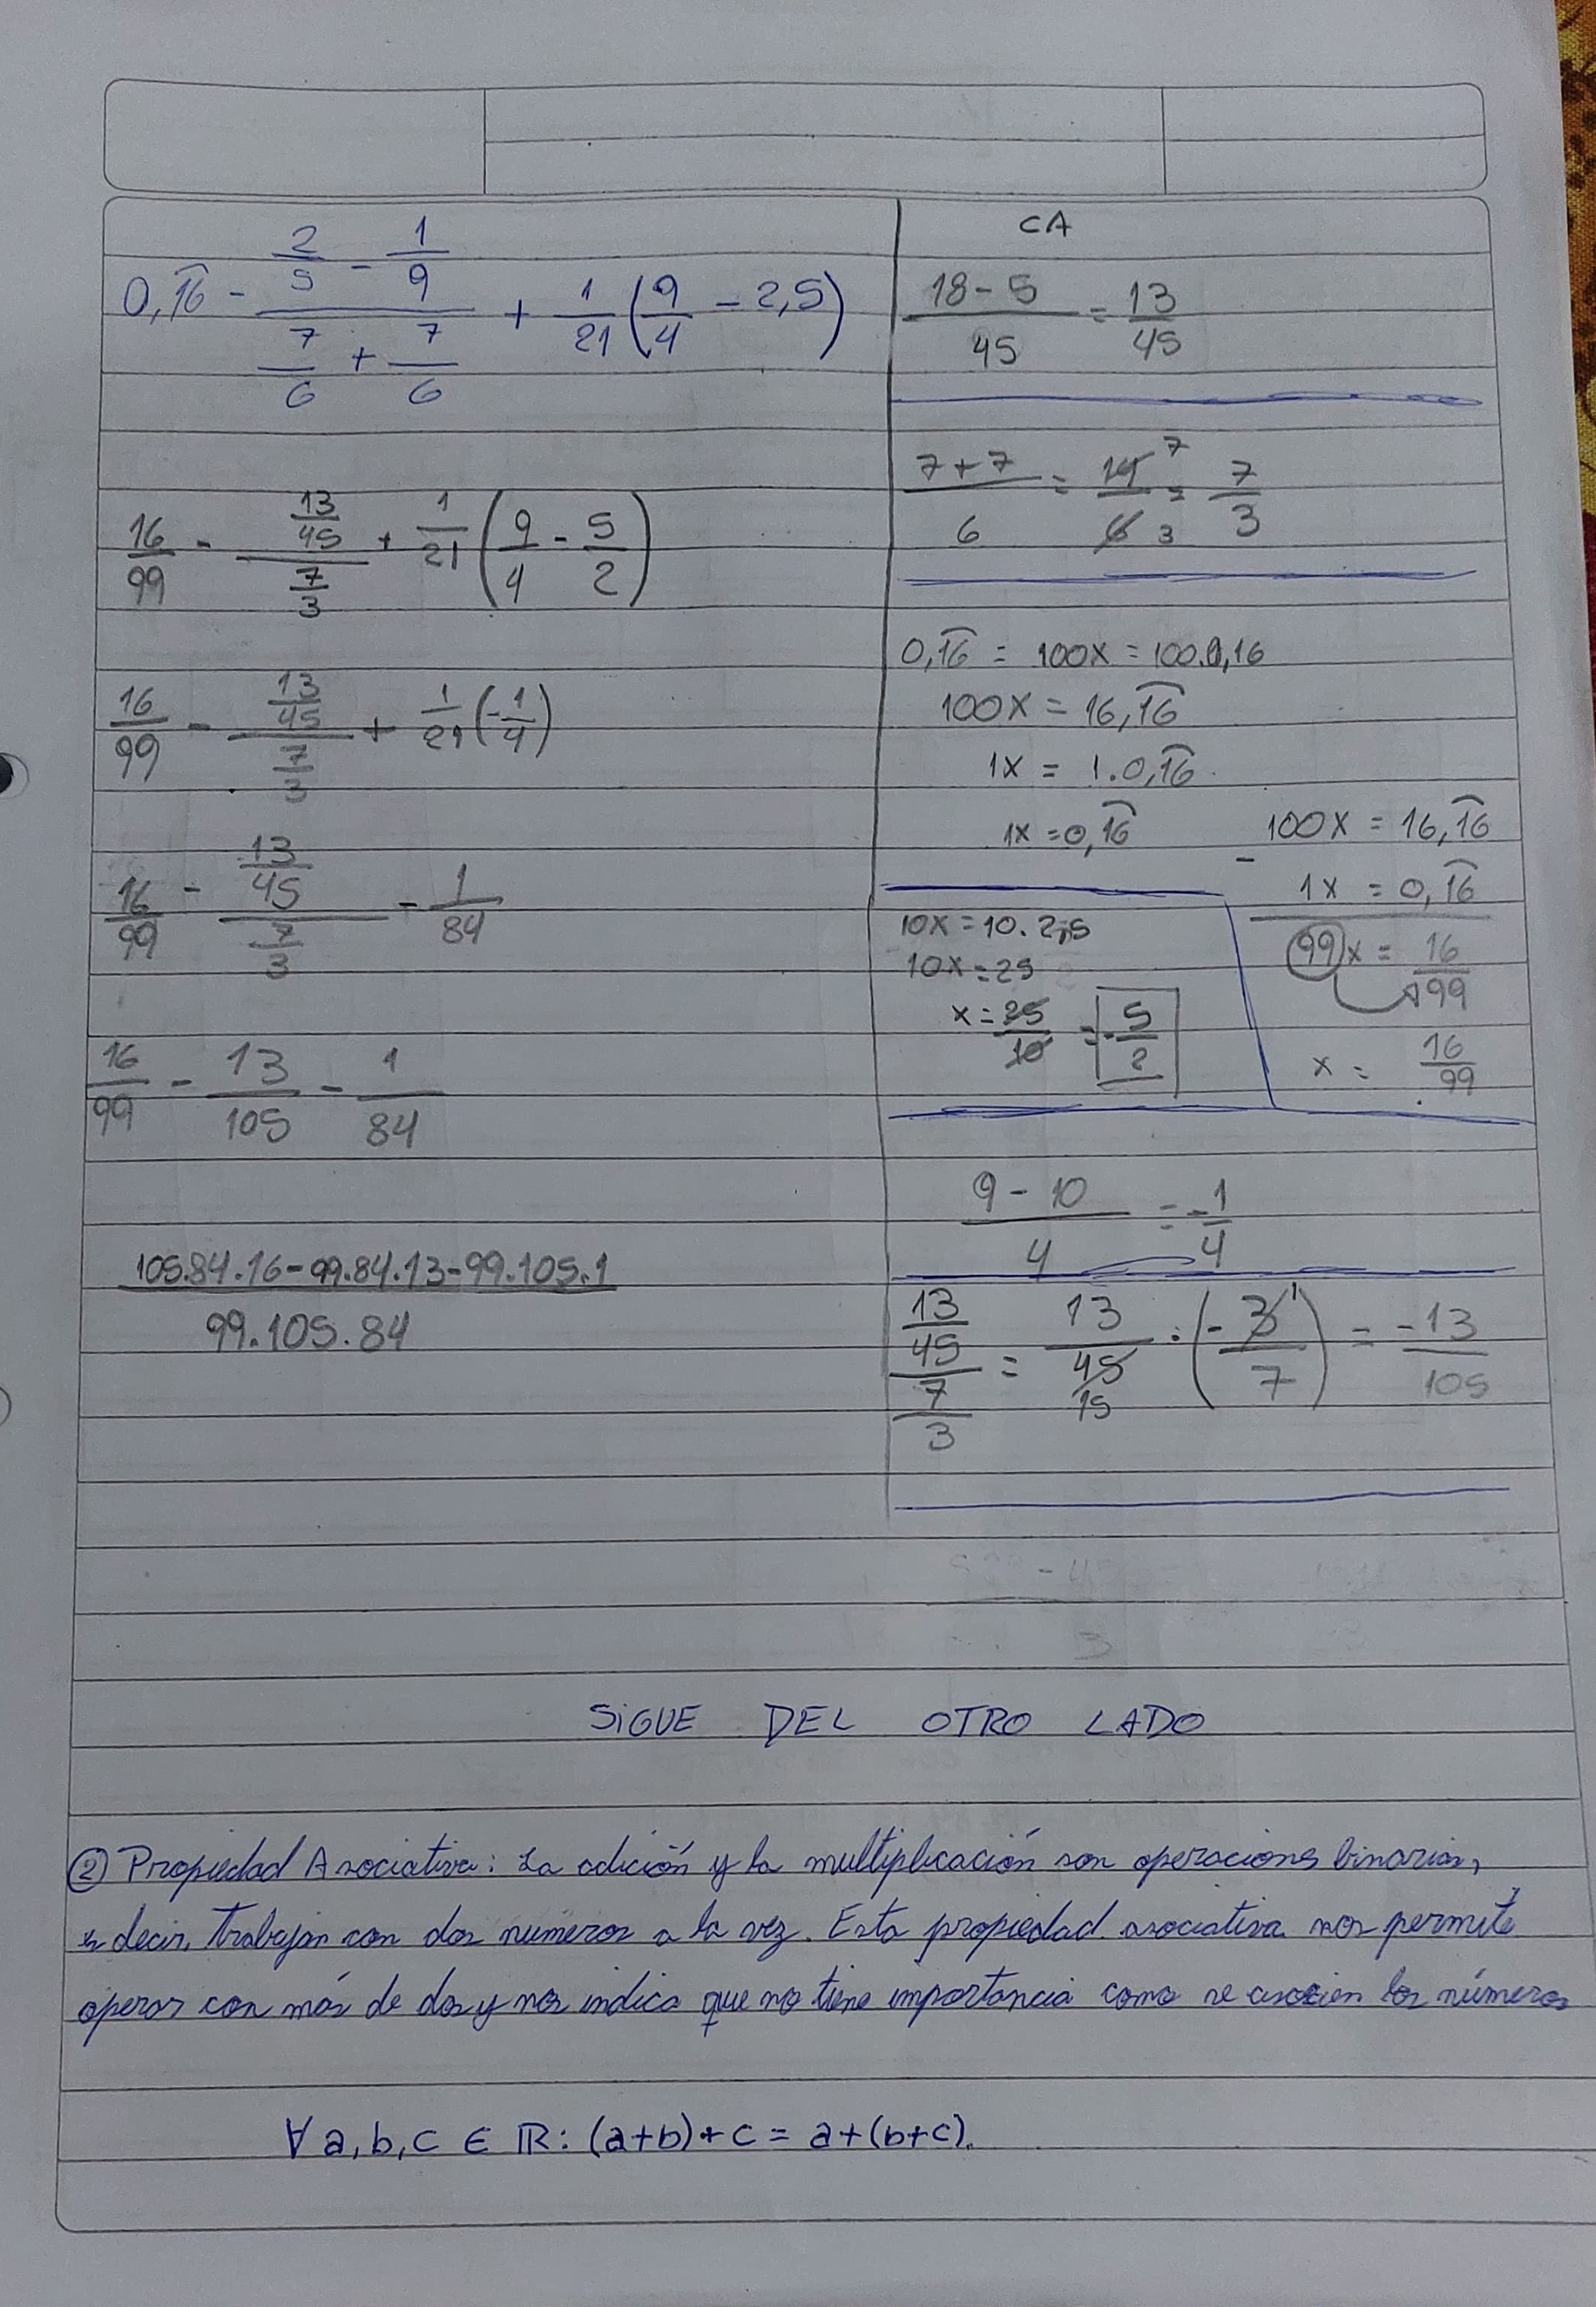 0,1͡6 - (2/5 - 1/9)/(7/6 + 7/6) + 1/21 (9/4 - 2,5)
16/99 - (13/45)/(7/3) + 1/21 (9/4 - 5/2)
16/99 - (13/45)/(7/3) + 1/21 (-1/4)
16/99 - (13/45)/(7/3) - 1/84
16/99 - 13/105 - 1/84
(105.84.16-99.84.13-99.105.1)/(99.105.84)
CA
(18-5)/45 = 13/45
(7+7)/6 = 14/6 7 3 = 7/3
0,1͡6 = 100x = 100.0,16
100x = 16,1͡6
1x = 1.0,1͡6
1x = 0,1͡6
100x = 16,1͡6
- 1x = 0,1͡6
99x = 16/99
x = 16/99
10x = 10.2,5
10x = 25
x = 25/10 = -5/2
(9-10)/4 = -1/4
(13/45)/(7/3) = 13/45 15 . (-3/7) 1 = -13/105
SIGUE DEL OTRO LADO
② Propiedad Asociativa: La adición y la multiplicación son operaciones binarias,
es decir, trabajan con dos numeros a la vez. Esta propiedad asociativa nos permite
operar con más de dos y nos indica que no tiene importancia como se asocien los números
∀ a,b,c ∈ ℝ: (a+b)+c = a+(b+c).